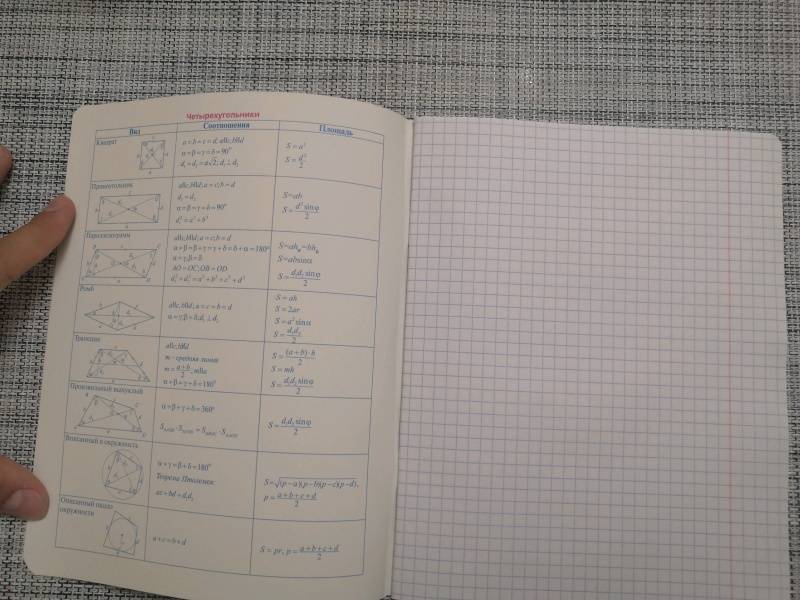 Четырехугольники
Вид Соотношения Площадь
Квадрат
a = b = c = d; a∥c, b∥d
α = β = γ = δ = 90°
d₁ = d₂ = a√2; d₁ ⊥ d₂
S = a²
S = d²/2
Прямоугольник
a∥c, b∥d; a = c; b = d
d₁ = d₂
α = β = γ = δ = 90°
d₁² = a² + b²
S = ab
S = d² sinφ/2
Параллелограмм
a∥c, b∥d; a = c; b = d
α + β = β + γ = γ + δ = δ + α = 180°
α = γ; β = δ
AO = OC; OB = OD
d₁² + d₂² = a² + b² + c² + d²
S = ahₐ = bh_b
S = absinα
S = d₁d₂ sinφ/2
Ромб
a∥c, b∥d; a = c = b = d
α = γ; β = δ; d₁ ⊥ d₂
S = ah
S = 2ar
S = a² sinα
S = d₁d₂/2
Трапеция
a∥c, b∦d
m - средняя линия
m = a + b/2, m∥a
α + β = γ + δ = 180°
S = (a + b) · h/2
S = mh
S = d₁d₂ sinφ/2
Произвольный выпуклый
α + β + γ + δ = 360°
S = d₁d₂ sinφ/2
Вписанный в окружность
α + γ = β + δ = 180°
Теорема Птолемея:
ac + bd = d₁d₂
S = √(p − a)(p − b)(p − c)(p − d),
p = a + b + c + d/2
Описанный около
окружности
a + c = b + d
S = pr, p = a + b + c + d/2